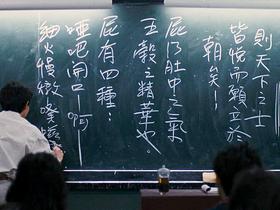 則天下之士
皆悅而願立於
朝矣！
屁乃肚中之氣
五穀之精華也
屁有四種：
啞吧開口—啊
細火慢